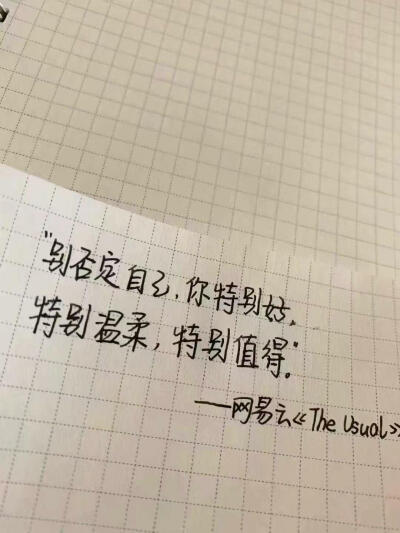 "别否定自己,你特别好,
特别温柔,特别值得。"
——网易云《The Usual》